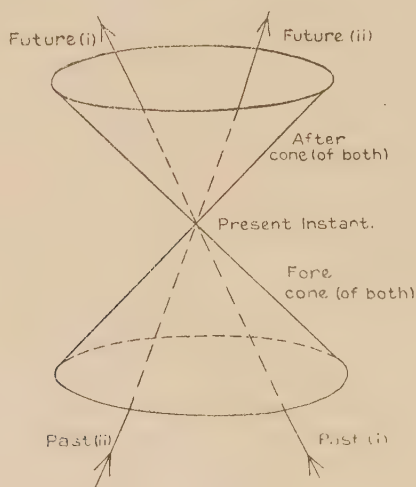 Future (i)
Future (ii)
After
cone (of both)
Present Instant.
Fore
cone (of both)
Past (ii)
Past (i)